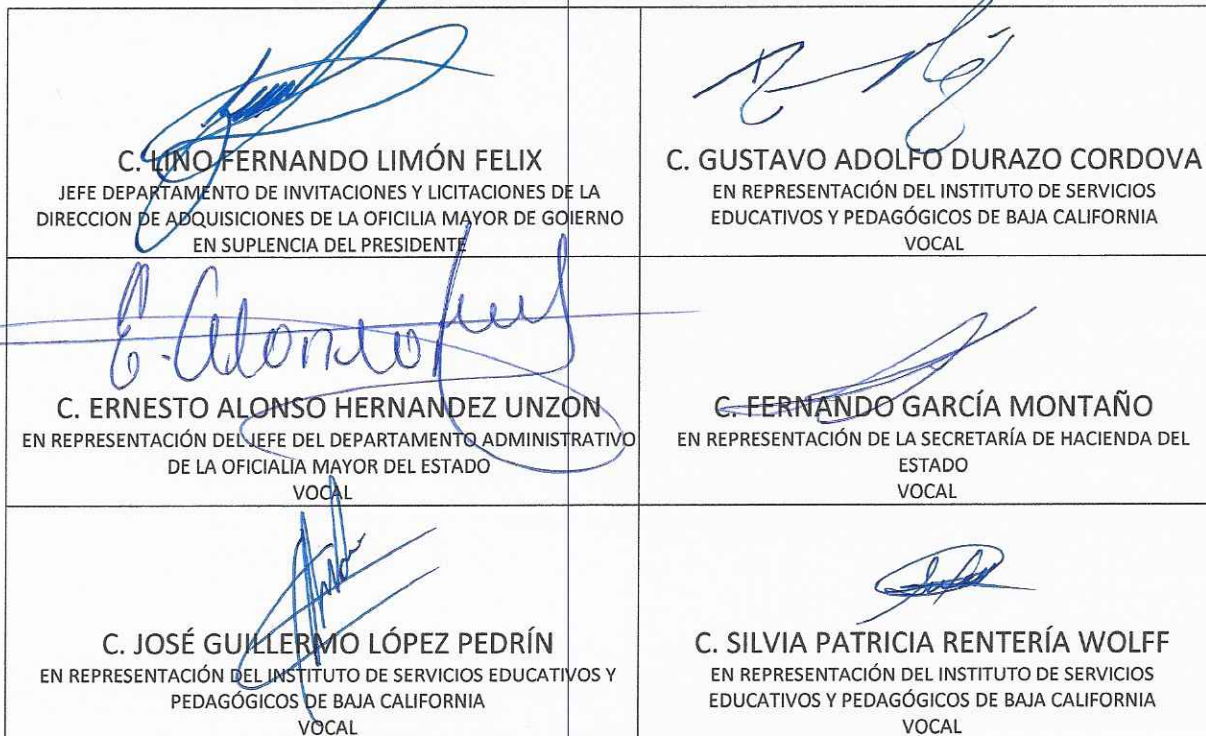 C. LINO FERNANDO LIMÓN FELIX
JEFE DEPARTAMENTO DE INVITACIONES Y LICITACIONES DE LA
DIRECCION DE ADQUISICIONES DE LA OFICILIA MAYOR DE GOIERNO
EN SUPLENCIA DEL PRESIDENTE
C. GUSTAVO ADOLFO DURAZO CORDOVA
EN REPRESENTACIÓN DEL INSTITUTO DE SERVICIOS
EDUCATIVOS Y PEDAGÓGICOS DE BAJA CALIFORNIA
VOCAL
E. Alonso
C. ERNESTO ALONSO HERNANDEZ UNZON
EN REPRESENTACIÓN DEL JEFE DEL DEPARTAMENTO ADMINISTRATIVO
DE LA OFICIALIA MAYOR DEL ESTADO
VOCAL
C. FERNANDO GARCÍA MONTAÑO
EN REPRESENTACIÓN DE LA SECRETARÍA DE HACIENDA DEL
ESTADO
VOCAL
C. JOSÉ GUILLERMO LÓPEZ PEDRÍN
EN REPRESENTACIÓN DEL INSTITUTO DE SERVICIOS EDUCATIVOS Y
PEDAGÓGICOS DE BAJA CALIFORNIA
VOCAL
C. SILVIA PATRICIA RENTERÍA WOLFF
EN REPRESENTACIÓN DEL INSTITUTO DE SERVICIOS
EDUCATIVOS Y PEDAGÓGICOS DE BAJA CALIFORNIA
VOCAL